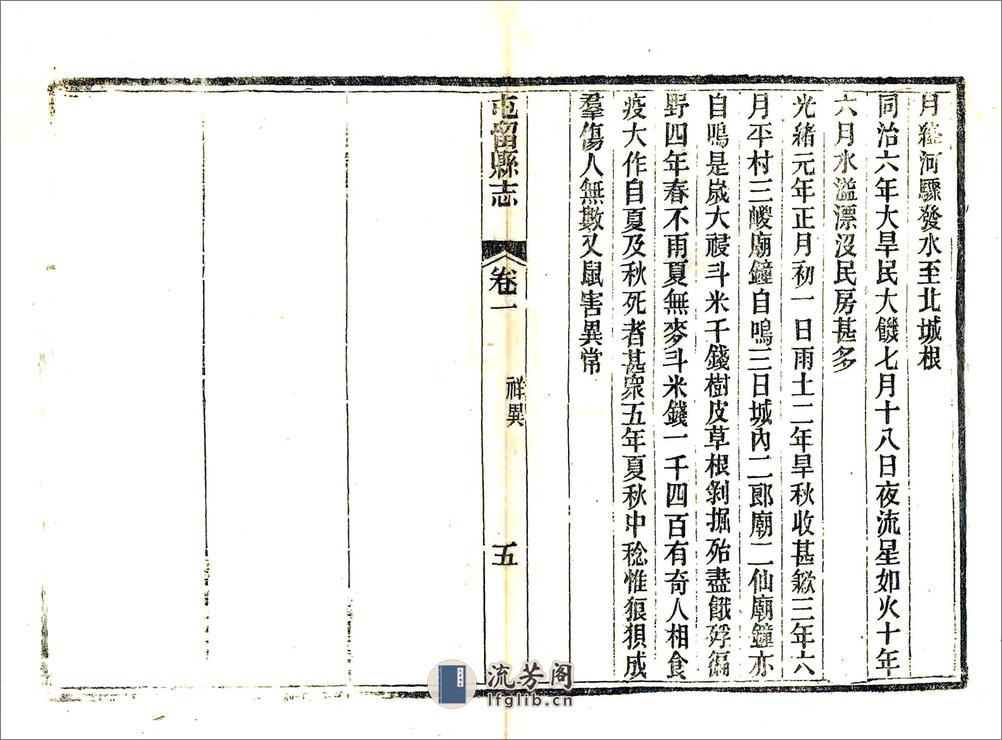 月絳河驟發水至北城根
同治六年大旱民大饑七月十八日夜流星如火十年
六月水溢漂沒民房甚多
光緒元年正月初一日雨土二年旱秋收甚歉三年六
月平村三嵕廟鐘自鳴三日城內二郎廟二仙廟鐘亦
自鳴是歲大祲斗米千錢樹皮草根剝掘殆盡餓殍徧
野四年春不雨夏無麥斗米錢一千四百有奇人相食
疫大作自夏及秋死者甚眾五年夏秋中稔惟狼狽成
羣傷人無數又鼠害異常
屯留縣志
卷一
祥異
五
流芳阁
lfglib.cn